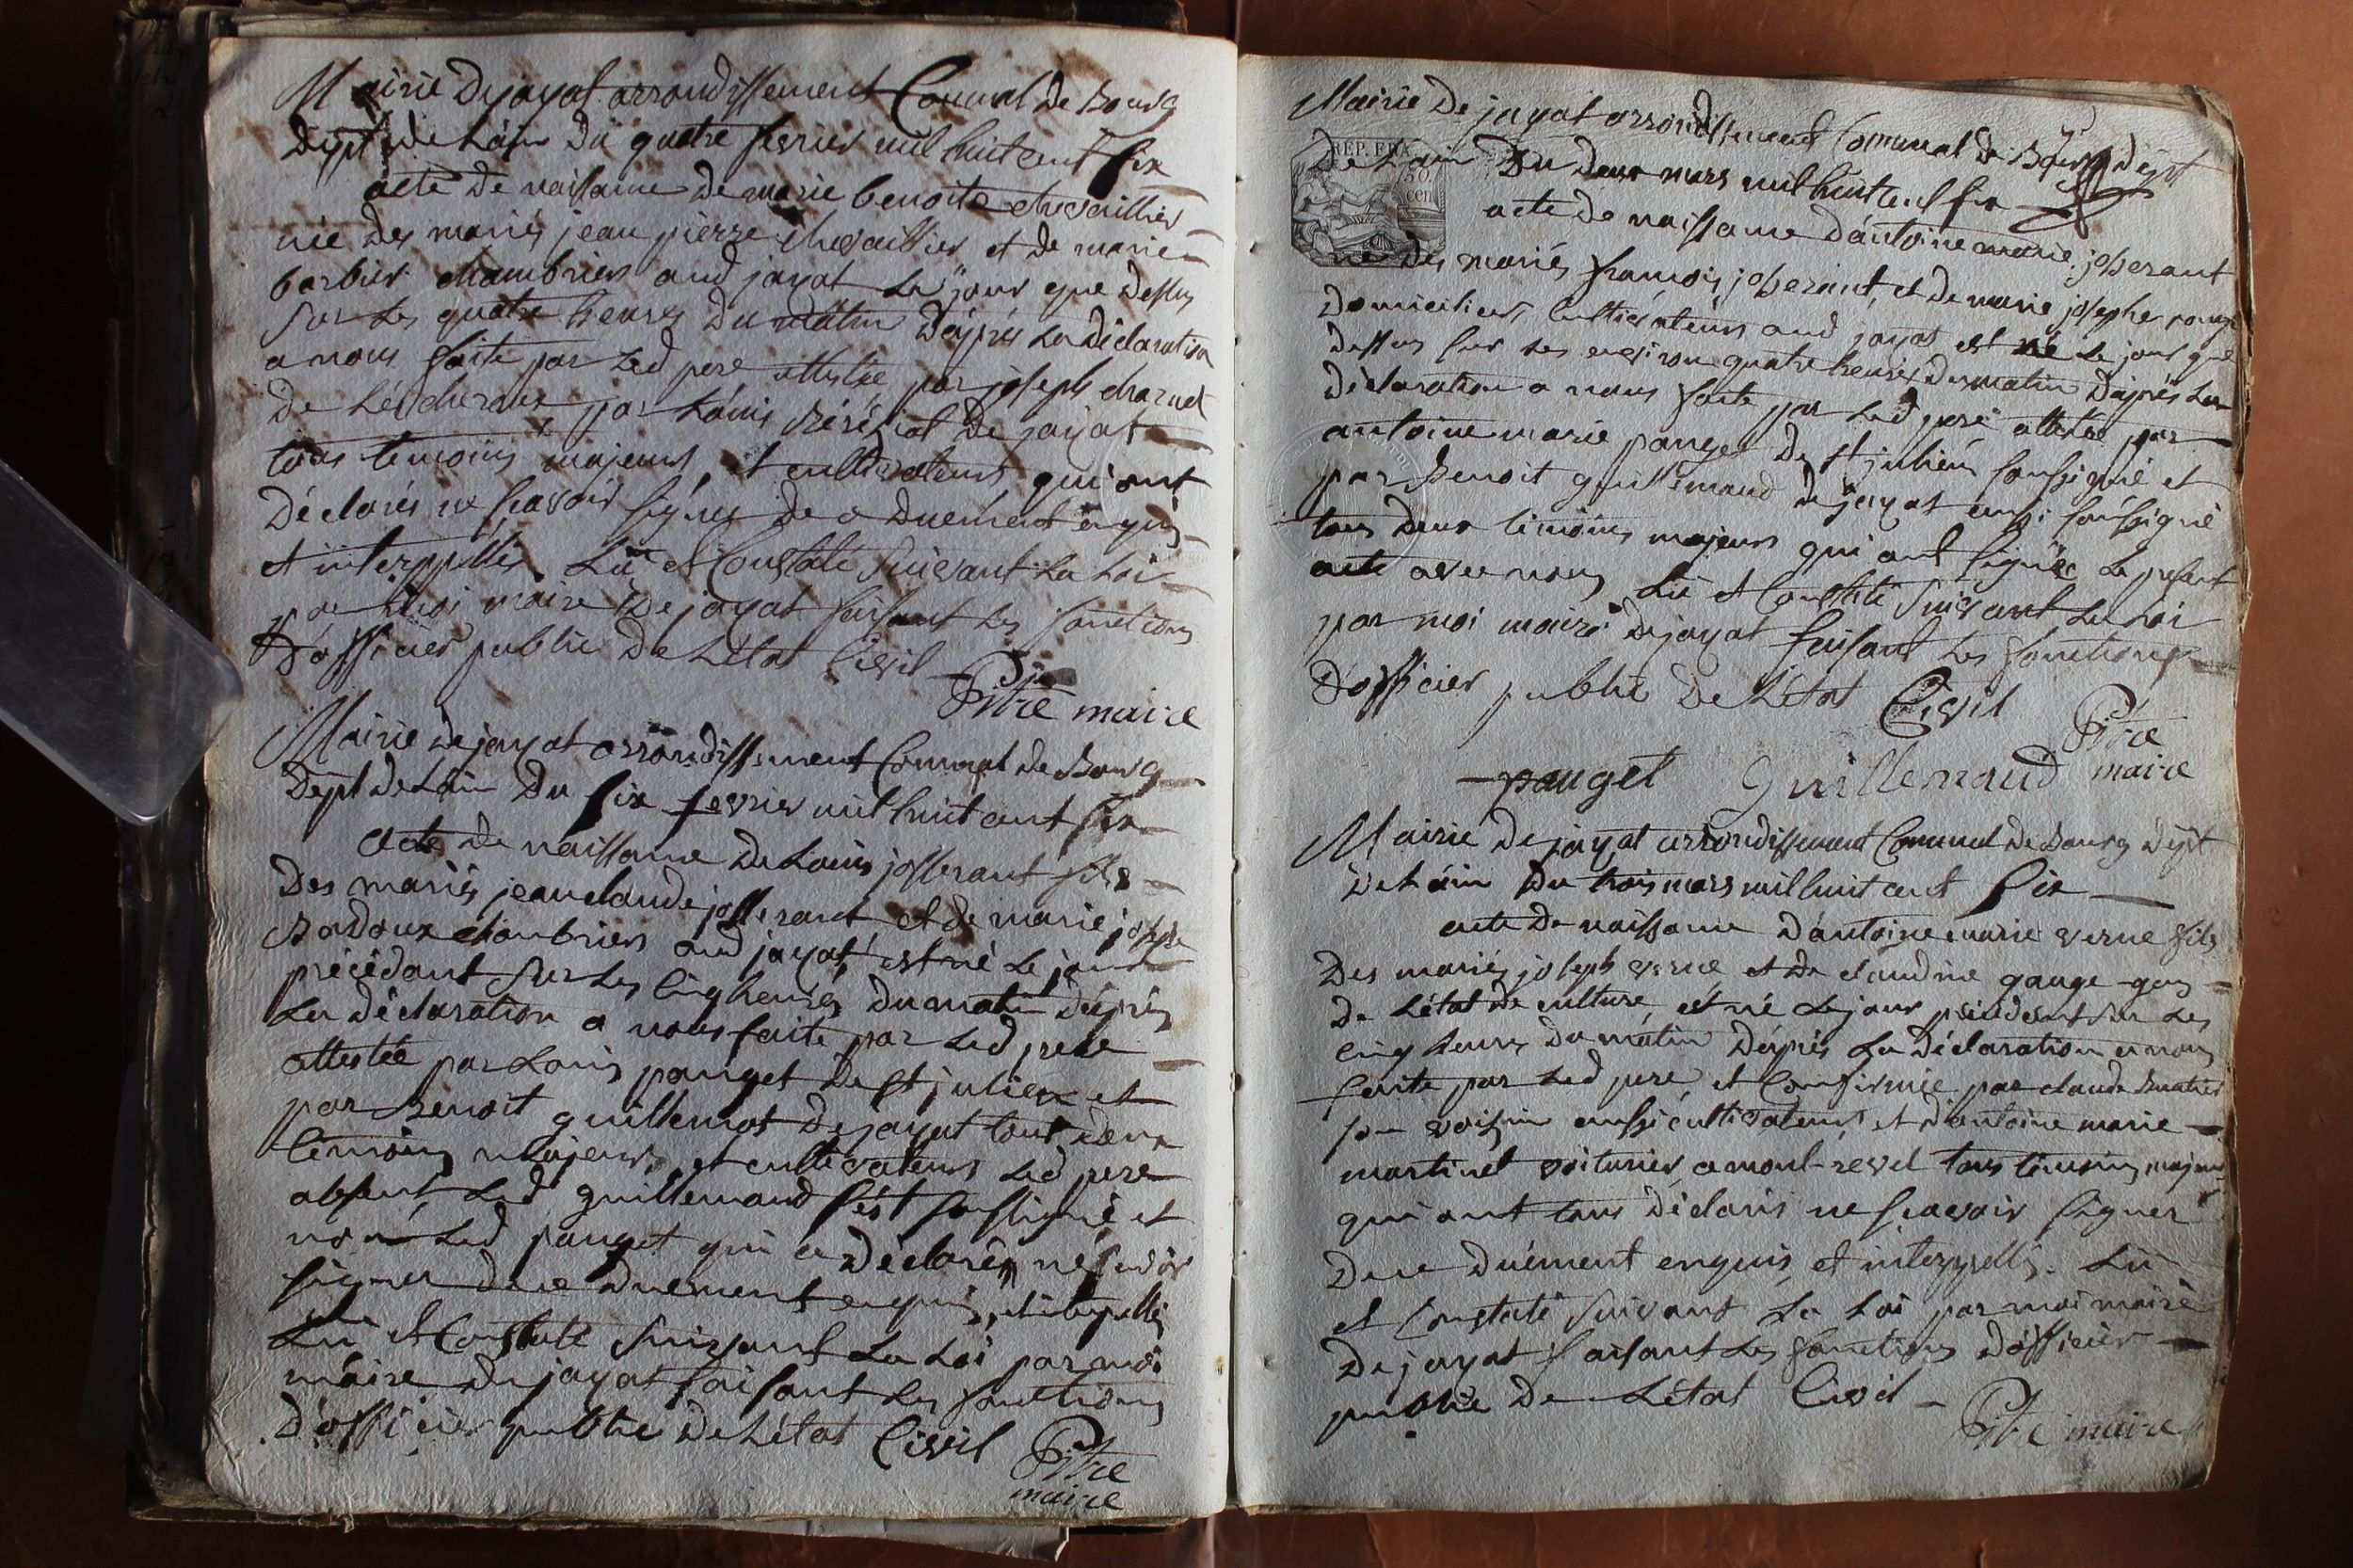 Mairie Dejayat arrondissement Communal de Bourg
Dépt de Lâin Dü quatre fevrier mil huit cent six
acte de naissance de marie benoite chevaillier
née des mariés jean pierre chevaillier et de marie
barbier chambriers aud jayat Le jour que Dessus
sur Les quatre heures Du matin Dáprés La Déclaration
a nous faite par Led pere attestée par joseph
De par Loüis De jayat
tous temoins majeurs, et cultivateurs qui ont
Déclarés ne scavoir signer de ce Duement enquis
et interppellés Lü et Constaté suivant La Loi
par Moi maire De jayat faisant Les fonctions
D'officier public De Létat Civil
Pitre maire
Mairie Dejayat arrondissement Communal de Bourg
Dépt de Láin Du six fevrier mil huit cent six
acte de naissance de Louis josserant fils
Des mariés jean claude josserant et de marie josephe
chambriers aud jayat, est né Le jour
précédant sur Les cinq heures Du matin Dáprés
La Déclaration a nous faite par Led pere
attestée par Louis pauget de st julien et
par Benoit guillemot dejayat tout deux
temoins majeurs et cultivateurs Led pere
absent, Led guillemaud s'est soussigné et
non Led pauget qui a Déclarés ne
signer de ce duement enquis, et interpellés
Lü et Constaté suivant La Loi par moi
máire De jayat faisant Les fonctions
D'officier public de Létat Civil
Pitre
maire
Mairie De jayat arrondissement Communal de Bourg dépt
REP. FRA.
50.
cen
De Lain Du Deux mars mil huit cent six
acte de naissance D'antoine marie josserant
né Des mariés francois josserant, et De marie josephe pauget
Domiciliers Cultivateurs aud jayat est né Le jour que
Dessus sur Les environ quatre heures Du matin Dáprés La
Déclaration a nous faite par Led pere attestée par
antoine marie pauget De st julien soussigné et
par Benoit guillemaud De jayat aussi soussigné
tous Deux temoins majeurs qui ont signés Le present
acte avec nous Lü et Constaté suivant La Loi
par moi maire De jayat faisant Les fonctions
D'officier public De Létat Civil
Pitre
pauget Guillemaud maire
Mairie De jayat arrondissement Communal De Bourg Dépt
De Láin Du trois mars mil huit cent six
acte De naissance D'antoine marie verne fils
Des mariés joseph verne et De claudine gauge gens
De Létat De culture, est né Le jour précedent sur Les
cinq heures Du matin Dáprés La Déclaration a nous
faite par Led pere et Confirmée par claude
son voisin aussi cultivateurs et D'antoine marie
martinet voiturier a mont-revel tous temoins majeurs
qui ont tous Déclarés ne scavoir signer
De ce Duément enquis et interppellés. Lü
et Constaté suivant La Loi par moi maire
De jayat faisant Les fonctions D'officier
public De Létat Civil
Pitre maire